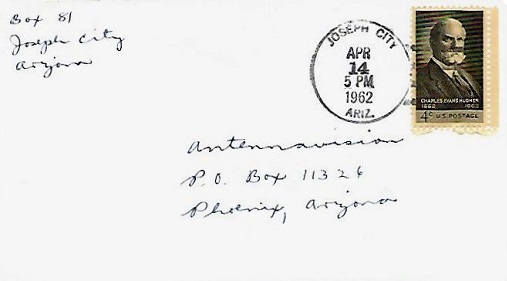 Box 81
Joseph City
Arizona
JOSEPH CITY
APR
14
5 PM
1962
ARIZ.
CHARLES EVANS HUGHES
1862 1962
4¢ U.S. POSTAGE
Antennavision
P.O. Box 11326
Phoenix, Arizona